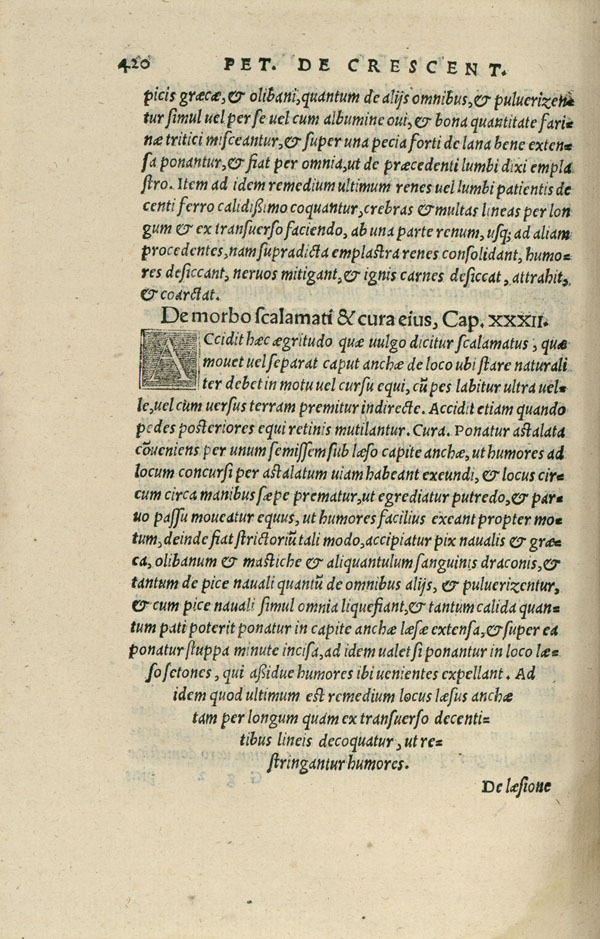 420 PET. DE CRESCENT.
picis græcæ, & olibani, quantum de alijs omnibus, & pulueriʒen-
tur simul uel per se uel cum albumine oui, & bona quantitate fari-
næ tritici misceantur, & super una pecia forti de lana bene exten-
sa ponantur, & fiat per omnia, ut de præcedenti lumbi dixi empla
stro. Item ad idem remedium ultimum renes uel lumbi patientis de
centi ferro calidißimo coquantur, crebras & multas lineas per lon
gum & ex transuerso faciendo, ab una parte renum, usq; ad aliam
procedentes, nam supradicta emplastra renes consolidant, humo-
res desiccant, neruos mitigant, & ignis carnes desiccat, attrahit,
& coarctat.
De morbo scalamati & cura eius, Cap. XXXII.
ACcidit hæc ægritudo quæ uulgo dicitur scalamatus, quæ
mouet uel separat caput anchæ de loco ubi stare naturali
ter debet in motu uel cursu equi, cũ pes labitur ultra uel-
le, uel cum uersus terram premitur indirecte. Accidit etiam quando
pedes posteriores equi retinis mutilantur. Cura. Ponatur astalata
cõueniens per unum semissem sub læso capite anchæ, ut humores ad
locum concursi per astalatum uiam habeant exeundi, & locus cir-
cum circa manibus sæpe prematur, ut egrediatur putredo, & par-
uo passu moueatur equus, ut humores facilius exeant propter mo-
tum, deinde fiat strictoriũ tali modo, accipiatur pix naualis & græ-
ca, olibanum & mastiche & aliquantulum sanguinis draconis, &
tantum de pice nauali quantũ de omnibus alijs, & pulueriʒentur,
& cum pice nauali simul omnia liquefiant, & tantum calida quan-
tum pati poterit ponatur in capite anchæ læsæ extensa, & super ea
ponatur stuppa minute incisa, ad idem ualet si ponantur in loco læ-
so setones, qui aßidue humores ibi uenientes expellant. Ad
idem quod ultimum est remedium locus læsus anchæ
tam per longum quam ex transuerso decenti-
tibus lineis decoquatur, ut re-
stringantur humores.
De læsione